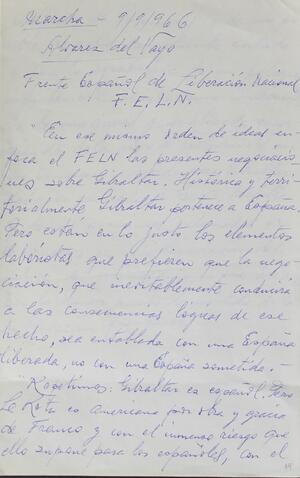 Marcha - 9/9/966
Alvarez del Vayo
Frente Español de Liberación Nacional
F.E.L.N.
"En ese mismo orden de ideas en-
foca el FELN las presentes negociacio
nes sobre Gibraltar. Histórica y terri-
torialmente Gibraltar pertenece a España.
Pero están en lo justo los elementos
laboristas que prefieren que la nego-
ciación, que inevitablemente conducirá
a las consecuencias lógicas de ese
hecho, sea entablada con una España
liberada, no con una España sometida.-
Repetimos: Gibraltar es español. Pero
la Rota es americana por obra y gracia
de Franco y con el inmenso riesgo que
ello supone para los españoles, con el